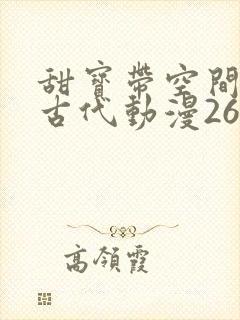 甜寶帶空間
古代動漫26
高領霞